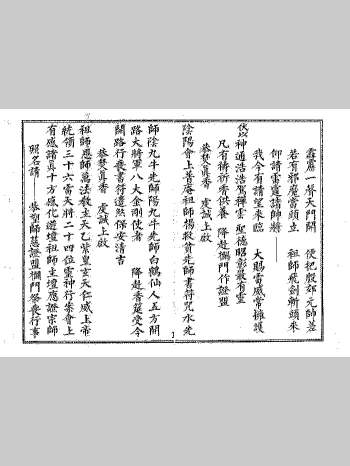 霹靂一聲天門開　便把殷郊元帥差
若有邪魔當頭立　祖師飛劍斬頭來
仰請雷霆諸帥將
我今有請望來臨　大賜雷威常擁護
伏以
神通浩浩駕祥雲　聖德昭彰最有靈
凡有禱祈香供養　降赴攔門作證盟
恭焚真香　虔誠上啟
陰陽會上普庵祖師楊救貧先師書符咒水先
師陰九牛先師陽九牛先師白鶴仙人五方開
路大將軍八大金剛使者　降赴香筵受今
關路行喪書符遣煞保安清吉
恭焚真香　虔誠上啟
祖師應師萬法教主天乙紫皇玄天仁威上帝
統領三十六當天將二十四位靈神行喪會上
有感諸真十方感化遊壇祖師主壇應證宗師
照名請　恭望師慈證盟攔門祭喪行事